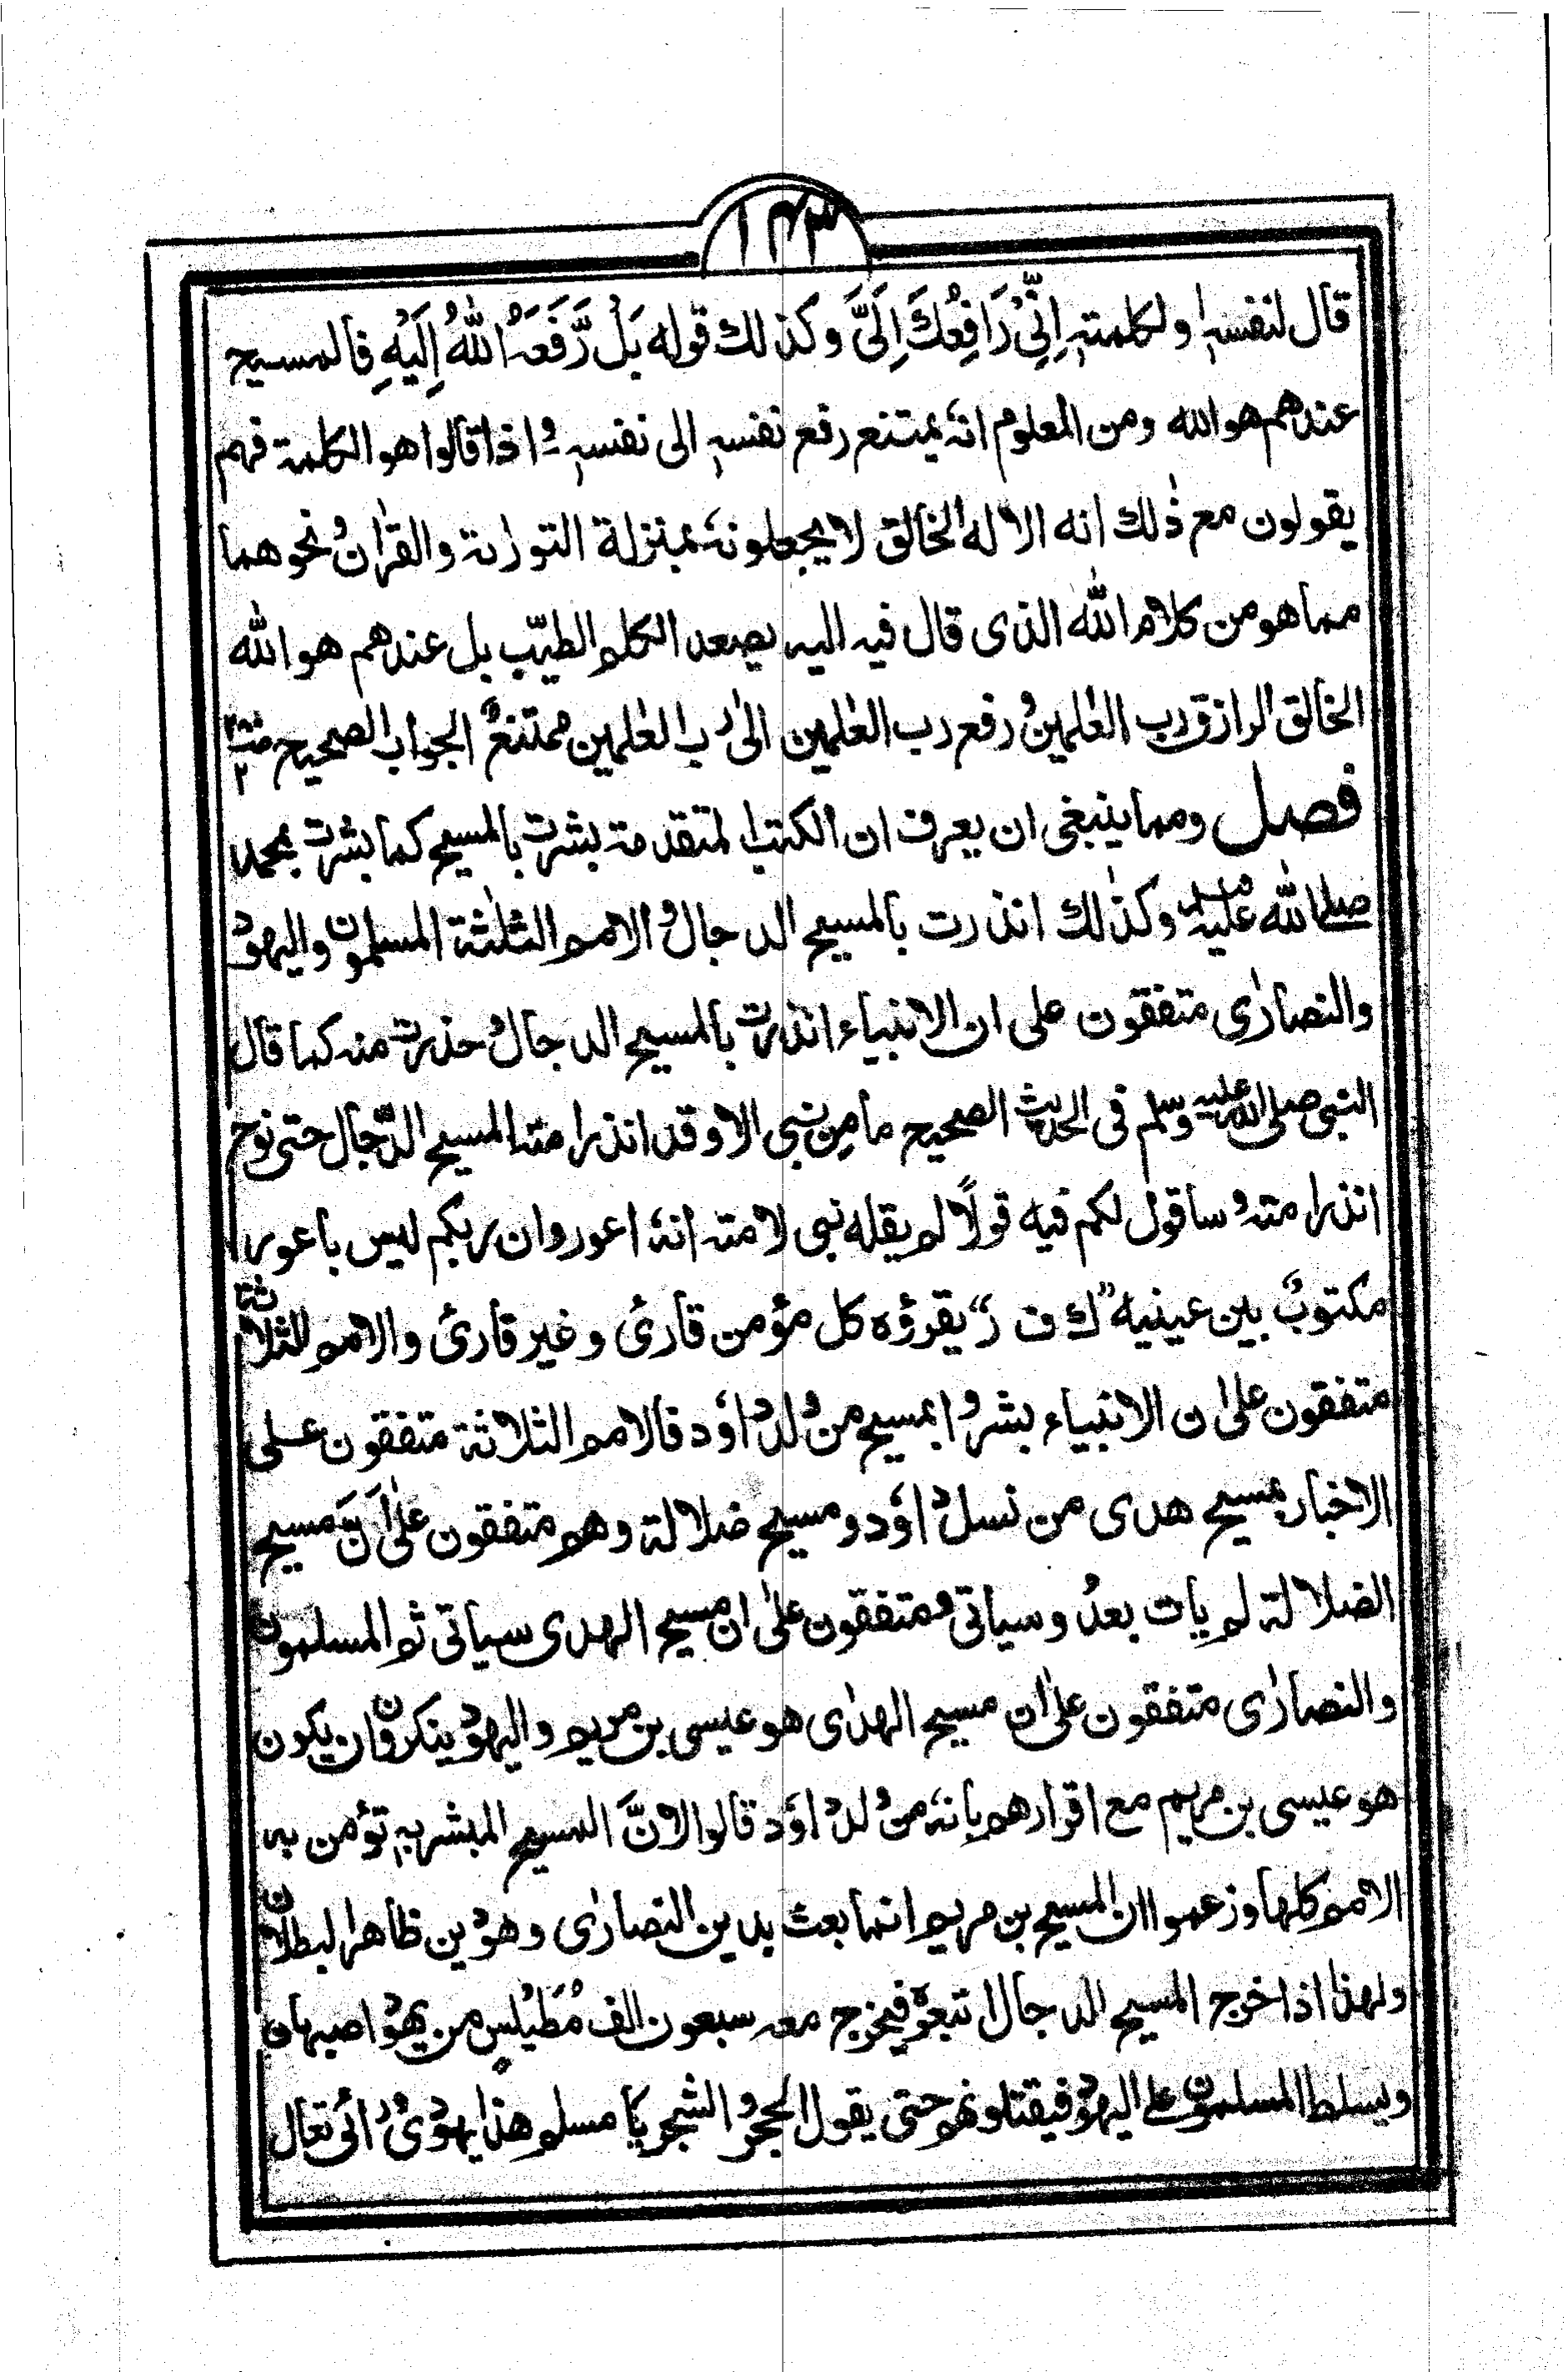 ١٤٣
قال لنفسہٖ ولکلمتہٖ اِنِّیْ رَافِعُكَ اِلَیَّ وکذلك قوله بَلْ رَّفَعَہُ اللّٰهُ اِلَیْهِ فالمسیح
عندهم هو الله ومن المعلوم انہٗ یمتنع رفع نفسہٖ الی نفسہٖ و اذا قالوا هو الکلمة فهم
یقولون مع ذٰلك انه الاله الخالق لا یجعلونہٗ بمنزلة التورٰىة والقراٰن ونحوهما
مما هو من کلام الله الذی قال فیه الیہ یصعد الکلم الطیّب بل عندهم هو الله
الخالق الرازق رب العٰلمین و رفع رب العٰلمین الیٰ رب العٰلمین ممتنعٌ الجواب الصحیح
فصل ومما ینبغی ان یعرف ان الکتب المتقدمة بشرت بالمسیح کما بشرت بمحمد
صلی الله علیہ وسلم وکذٰلك انذرت بالمسیح الدجال والامم الثلٰثة المسلمون والیهود
والنصارٰی متفقون علی ان الانبیاء انذرت بالمسیح الدجال وحذرت منہ کما قال
النبی صلی الله علیہ وسلم فی الحدیث الصحیح ما مِن نبی الا وقد انذر امتہ المسیح الدّجال حتی نوح
انذر امتہ وساقول لکم فیه قولًا لم یقله نبی لامتہ انہٗ اعور وان ربکم لیس باعور
مکتوبٌ بین عینیہ "ك ف ر" یقرؤه کل مؤمن قارئ وغیر قارئ والامم الثلاثة
متفقون علی ان الانبیاء بشروا بمسیح من ولد داوٗد فالامم الثلاثة متفقون علی
الاخبار بمسیح هدی من نسل داوٗد ومسیح ضلالة وهم متفقون علیٰ اَنَّ مسیح
الضلالة لم یات بعدُ وسیاتی و متفقون علیٰ ان مسیح الهدی سیاتی ثم المسلمون
والنصارٰی متفقون علیٰ ان مسیح الهدٰی هو عیسی بن مریم والیهود ینکرون ان یکون
هو عیسی بن مریم مع اقرارهم بانہٗ من ولد داوٗد قالوا لانَّ المسیح المبشر بہٖ تؤمن بہ
الامم کلها وزعموا ان المسیح بن مریم انما بعث بدین النصارٰی وهو دین ظاهر البطلان
ولهذا اذا خرج المسیح الدجال اتبعوه فیخرج معہ سبعون الف مُطَیْلِس من یهود اصبهان
ویسلط المسلمون علی الیهود فیقتلونهم حتی یقول الحجر والشجر یا مسلم هذا یهودی ورائی تعال